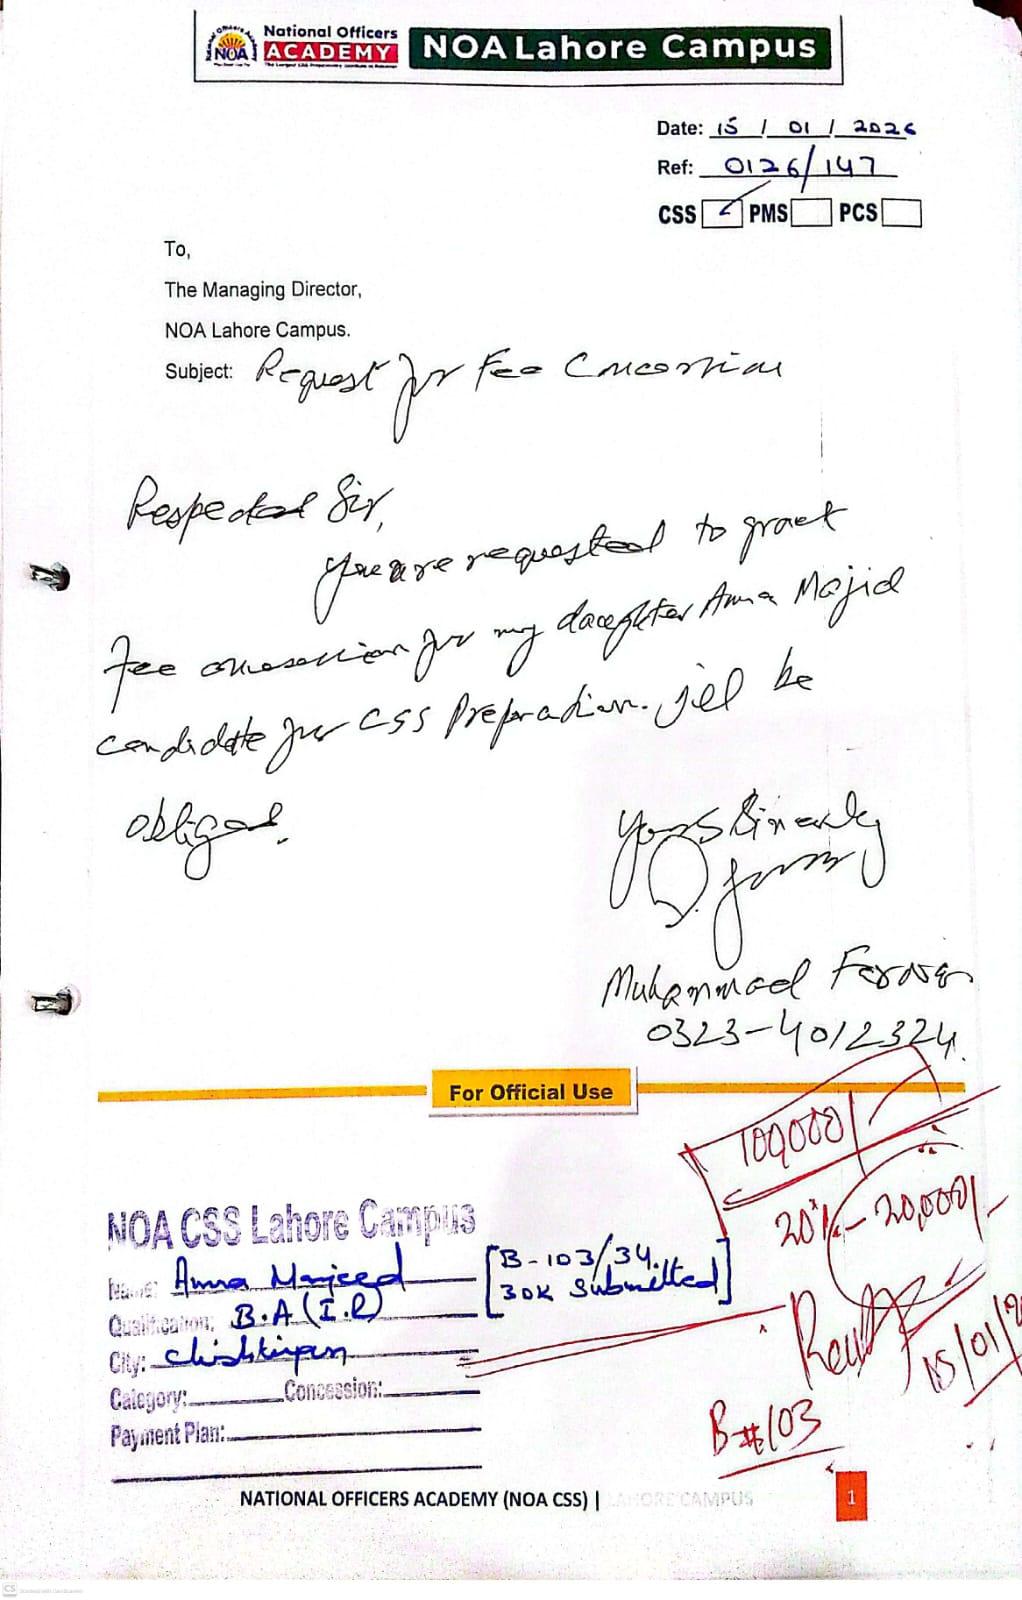 National Officers
ACADEMY
NOA
NOA Lahore Campus
Date: 15 / 01 / 2026
Ref: 0126/147
CSS ✓ PMS PCS
To,
The Managing Director,
NOA Lahore Campus.
Subject: Request for Fee Concession
Respected Sir,
You are requested to grant
fee concession for my daughter Amna Majid
candidate for CSS Preparation. I'll be
obliged.
Yours Sincerely
Muhammad
0323-4012324
For Official Use
100,000/-
20% - 20,000/-
NOA CSS Lahore Campus
Name: Amna Majeed
[B-103/34.
30K Submitted]
Qualification: B.A (I.R)
City: Chishtian
Category: Concession:
Payment Plan:
15/01/2
B#103
NATIONAL OFFICERS ACADEMY (NOA CSS) | LAHORE CAMPUS
1
CS Scanned with CamScanner